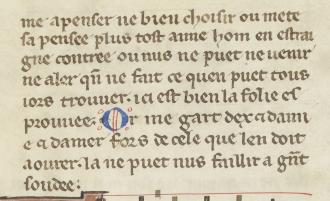 me a penser ne bien choisir ou mete
sa pensee plus tost aime hom en estrai
gne contree ou nus ne puet ne uenir
ne aler qñ ne fait ce quen puet tous
iors trouuer. ici est bien la folie es
prouuee. Or me gart dex a dami
e a damer fors de cele que len doit
aourer. la ne puet nus faillir a gñt
soudee: